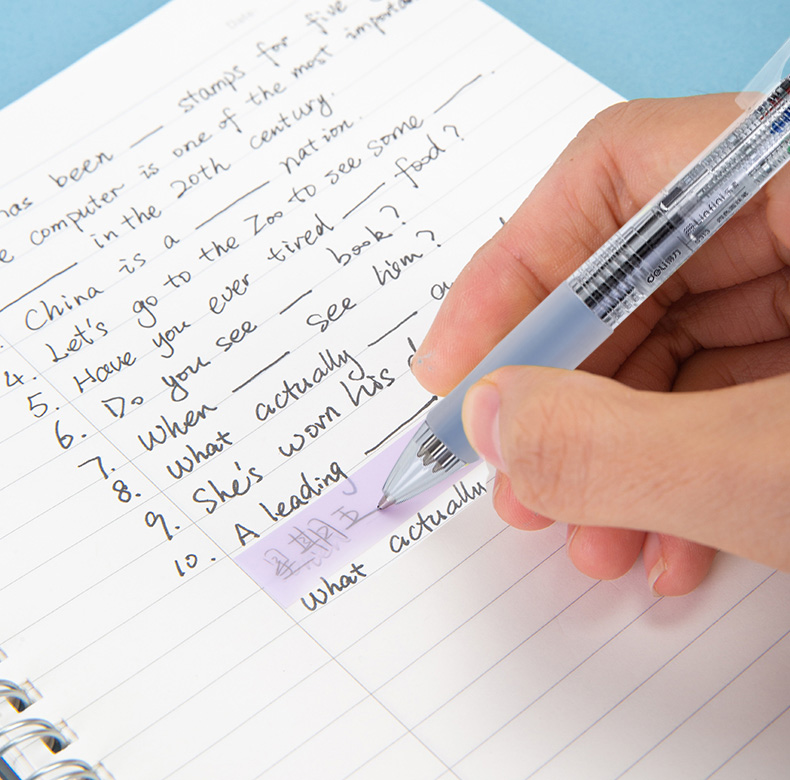 has been ___ stamps for five
computer is one of the most important
___ in the 20th century.
China is a ___ nation.
4. Let's go to the Zoo to see some ___.
5. Have you ever tired ___ food?
6. Do you see ___ book?
7. When ___ see him?
8. What actually ___
9. She's worn his
10. A leading ___
星期五
What actually
deli得力